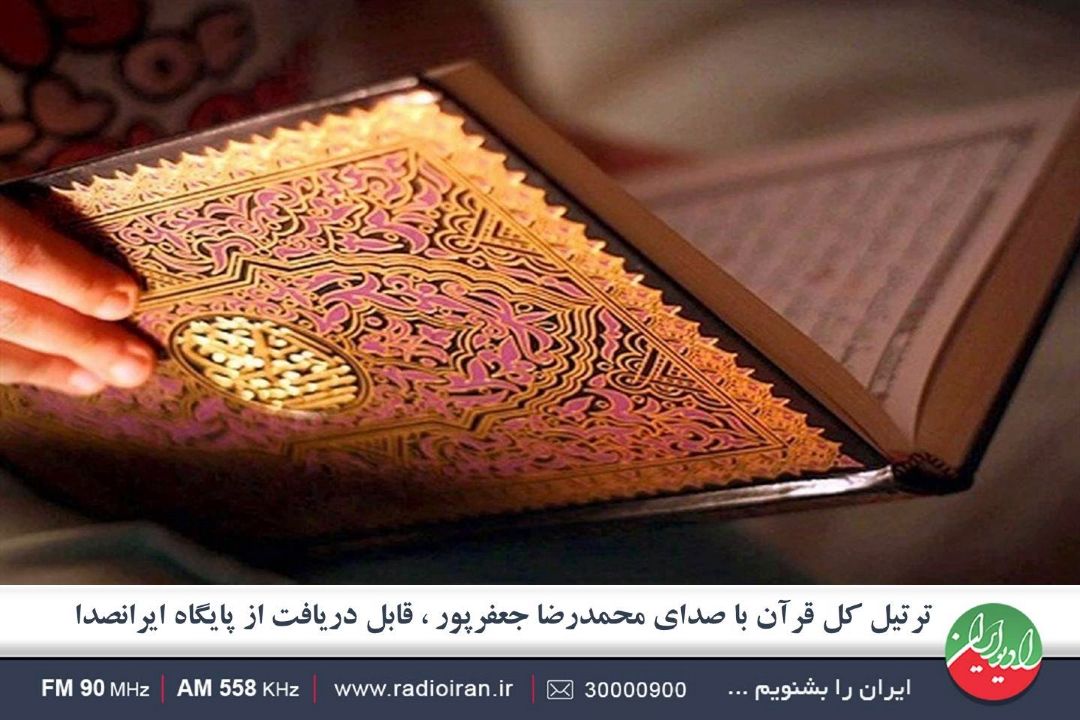 ترتیل کل قرآن با صدای محمدرضا جعفرپور ، قابل دریافت از پایگاه ایرانصدا
رادیو ایران
ایران را بشنویم ... 30000900 | www.radioiran.ir | AM 558 KHz | FM 90 MHz